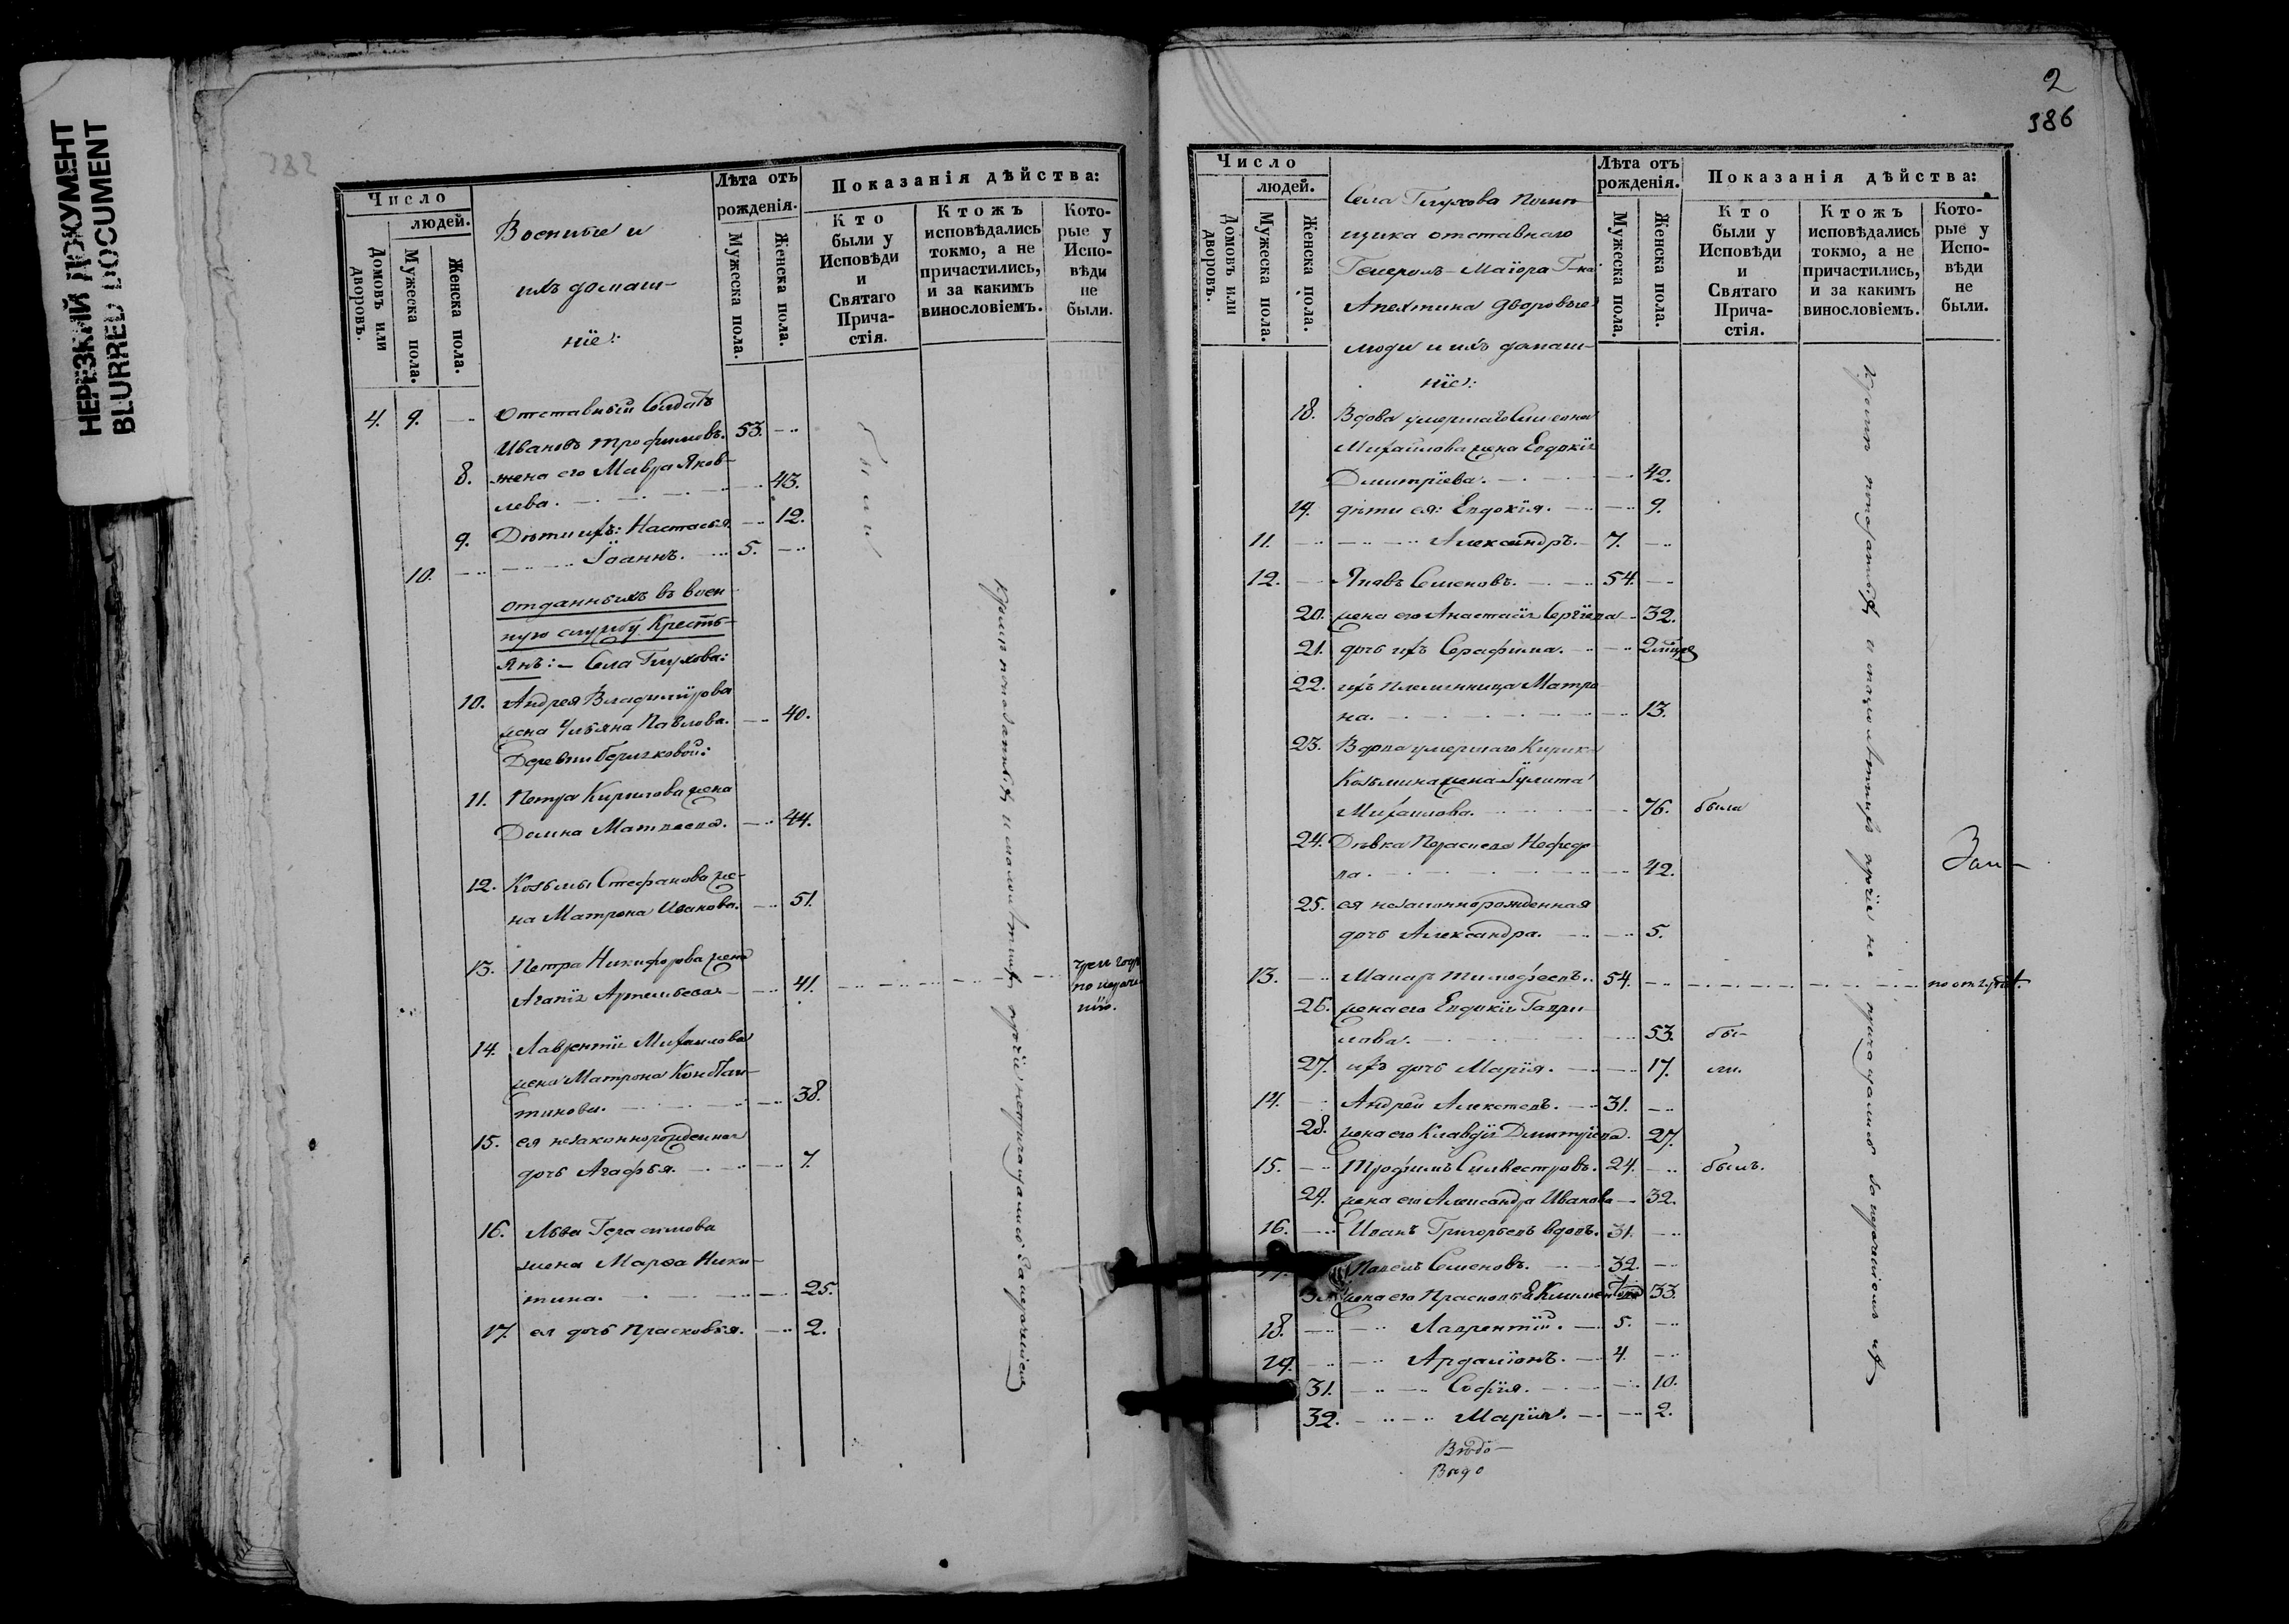 НЕРЕЗКИЙ ДОКУМЕНТ
BLURRED DOCUMENT
Число
людей.
Домовъ или дворовъ.
Мужеска пола.
Женска пола.
Военные и
ихъ домаш-
ніе:
Лѣта отъ
рожденія.
Мужеска пола.
Женска пола.
Показанія дѣйства:
Кто
были у
Исповѣди
и
Святаго
Прича-
стія.
Ктожъ
исповѣдались
токмо, а не
причастились,
и за какимъ
винословіемъ.
Кото-
рые у
Испо-
вѣди
не
были.
4. 9. Отставный Солдатъ
Ивановъ Трофимовъ. 53.
8. жена его Мавра Яков-
лева. 43.
9. Дѣти ихъ: Настасья 12.
10. Іоаннъ. 5.
Были
отданныхъ въ воен-
ную службу Кресть-
янъ: – Села Глухова:
10. Андрея Владимірова
жена Ульяна Павлова. 40.
Деревни
11. Петра Кирилова жена
Домна Матвеева. 44.
12. Козьмы Стефанова же-
на Матрона Иванова. 51.
13. Петра Никифорова жена
Агапія Артемьева 41.
14. Лаврентія Михаилова
жена Матрона Констан-
тинова. 38.
15. ея незаконнорожденная
дочь Агафья. 7.
16. Льва Герасимова
жена Марѳа Ники-
тина. 25.
17. ея дочь Прасковья. 2.
2
386
Число
людей.
Домовъ или дворовъ.
Мужеска пола.
Женска пола.
Села Глухова Помѣ-
щика отставнаго
Генералъ-Маіора Г-на
Апехтина дворовые
люди и ихъ домаш-
ніе:
Лѣта отъ
рожденія.
Мужеска пола.
Женска пола.
Показанія дѣйства:
Кто
были у
Исповѣди
и
Святаго
Прича-
стія.
Ктожъ
исповѣдались
токмо, а не
причастились,
и за какимъ
винословіемъ.
Кото-
рые у
Испо-
вѣди
не
были.
18. Вдова умершаго Симеона
Михаилова жена Евдокія
Димитріева. 42.
19. дѣти ея: Евдокія. 9.
11. Александръ. 7.
12. Яковъ Семеновъ. 54.
20. жена его Анастасія Сергіева 32.
21. дочь ихъ Серафима. 2
22. ихъ Племянница Матро-
на. 13.
23. Вдова умершаго Кирика
Козьмина жена Іулита
Михаилова. 76. была
24. Дѣвка Пораскева Нефедо-
ва. 42.
25. ея незаконнорожденная
дочь Александра. 5.
13. Макаръ Тимофеевъ. 54.
26. жена его Евдокія Гаври-
лова. 53. бы-
27. ихъ дочь Марія. 17. ли.
14. Андрей Алексеевъ. 31.
28. жена его Клавдія Димитріева. 27.
15. Трофимъ Сильвестровъ. 24. былъ.
29. жена его Александра Иванова 32.
16. Иванъ Григорьевъ вдовъ. 31.
Павелъ Семеновъ. 32.
жена его Прасковья 33.
18. Лаврентій. 5.
19. Ардаліонъ. 4.
31. Софія. 10.
32. Марія. 2.